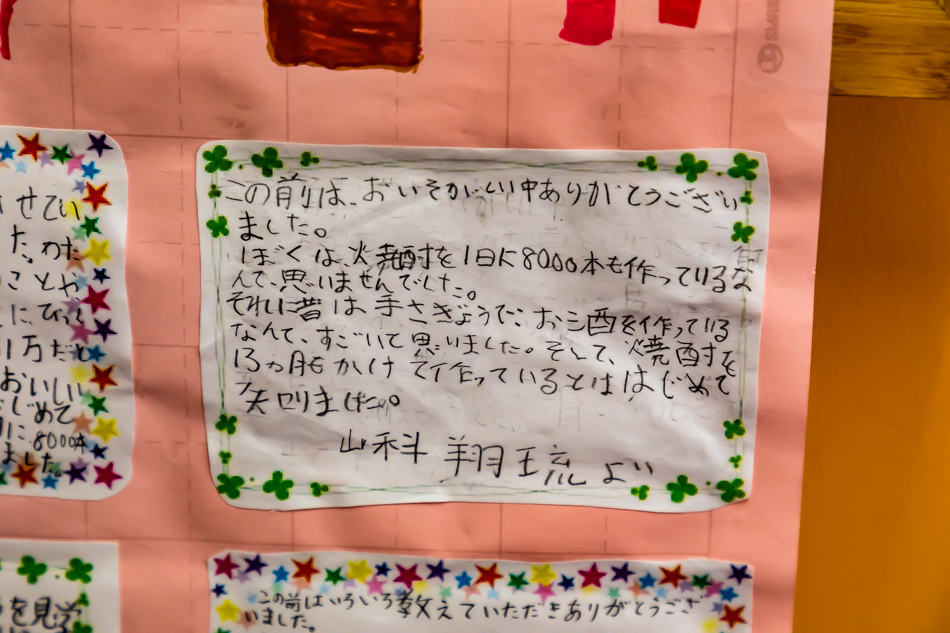 せてい
た。わた
ことや
にびっく
1万だと
おいしい
じめて
に8000本
ました。
この前は、おいそがしい中ありがとうござい
ました。
ぼくは、焼酎を1日に8000本も作っているな
んて、思いませんでした。
それに昔は手さぎょうで、お酒を作っている
なんて、すごいて思いました。そして、焼酎を
13ヵ月もかけて作っているとははじめて
知りました。
山科 翔琉 より
を見学
この前はいろいろ教えていただきありがとうござ
いました。